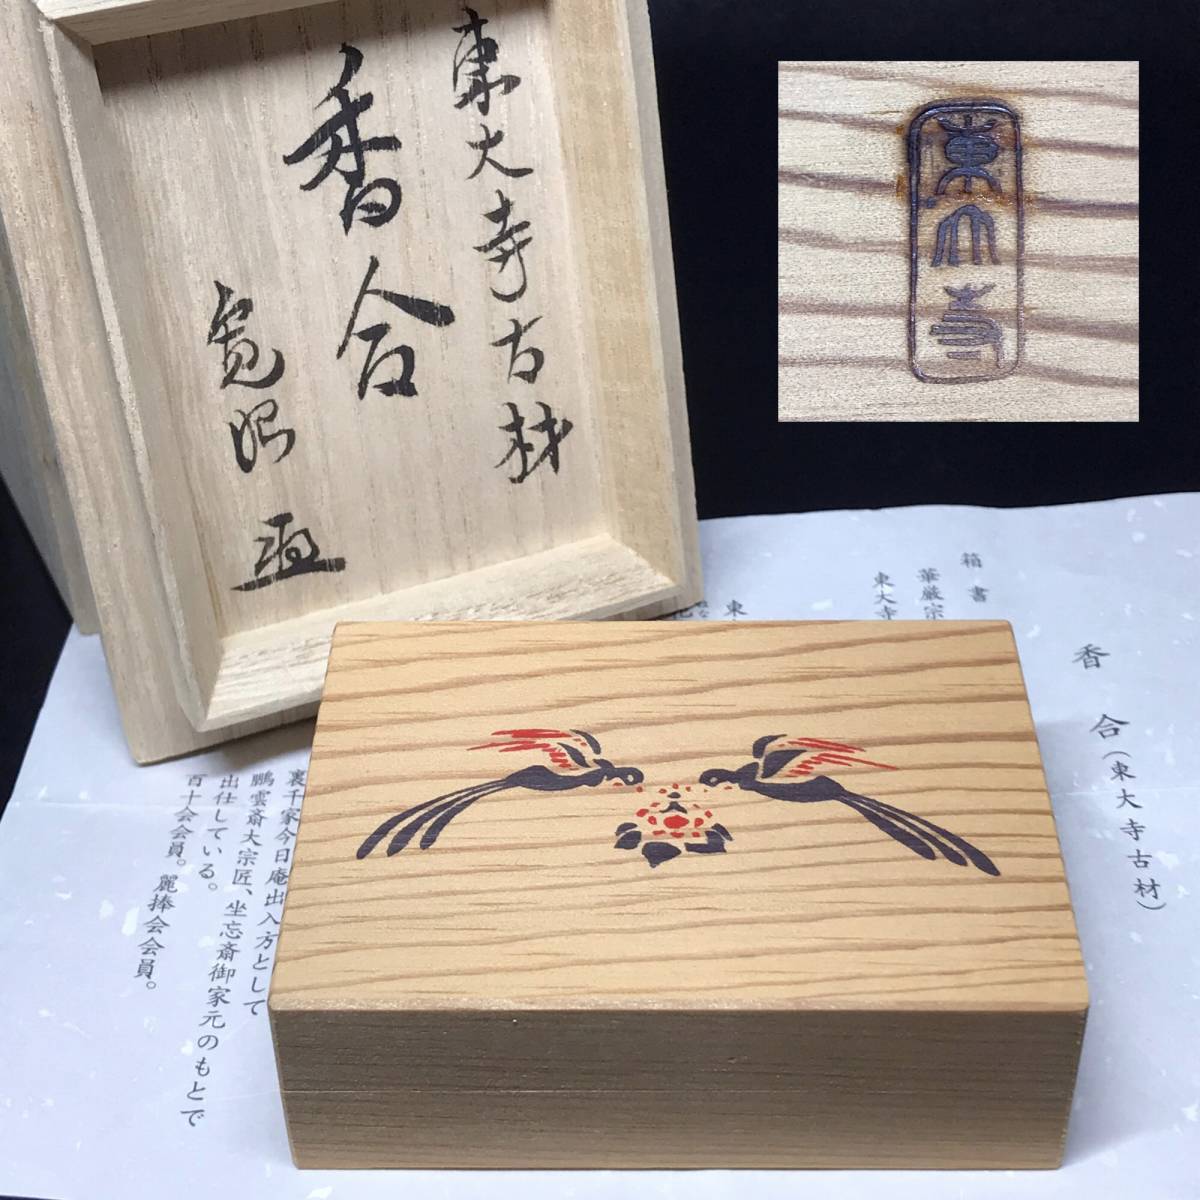 東大寺古材
香合
東大寺
香合（東大寺古材）
箱書
華厳宗
東大寺
東
裏千家今日庵出入方として
鵬雲斎大宗匠、坐忘斎御家元のもとで
出仕している。
百十会会員。麗捧会会員。